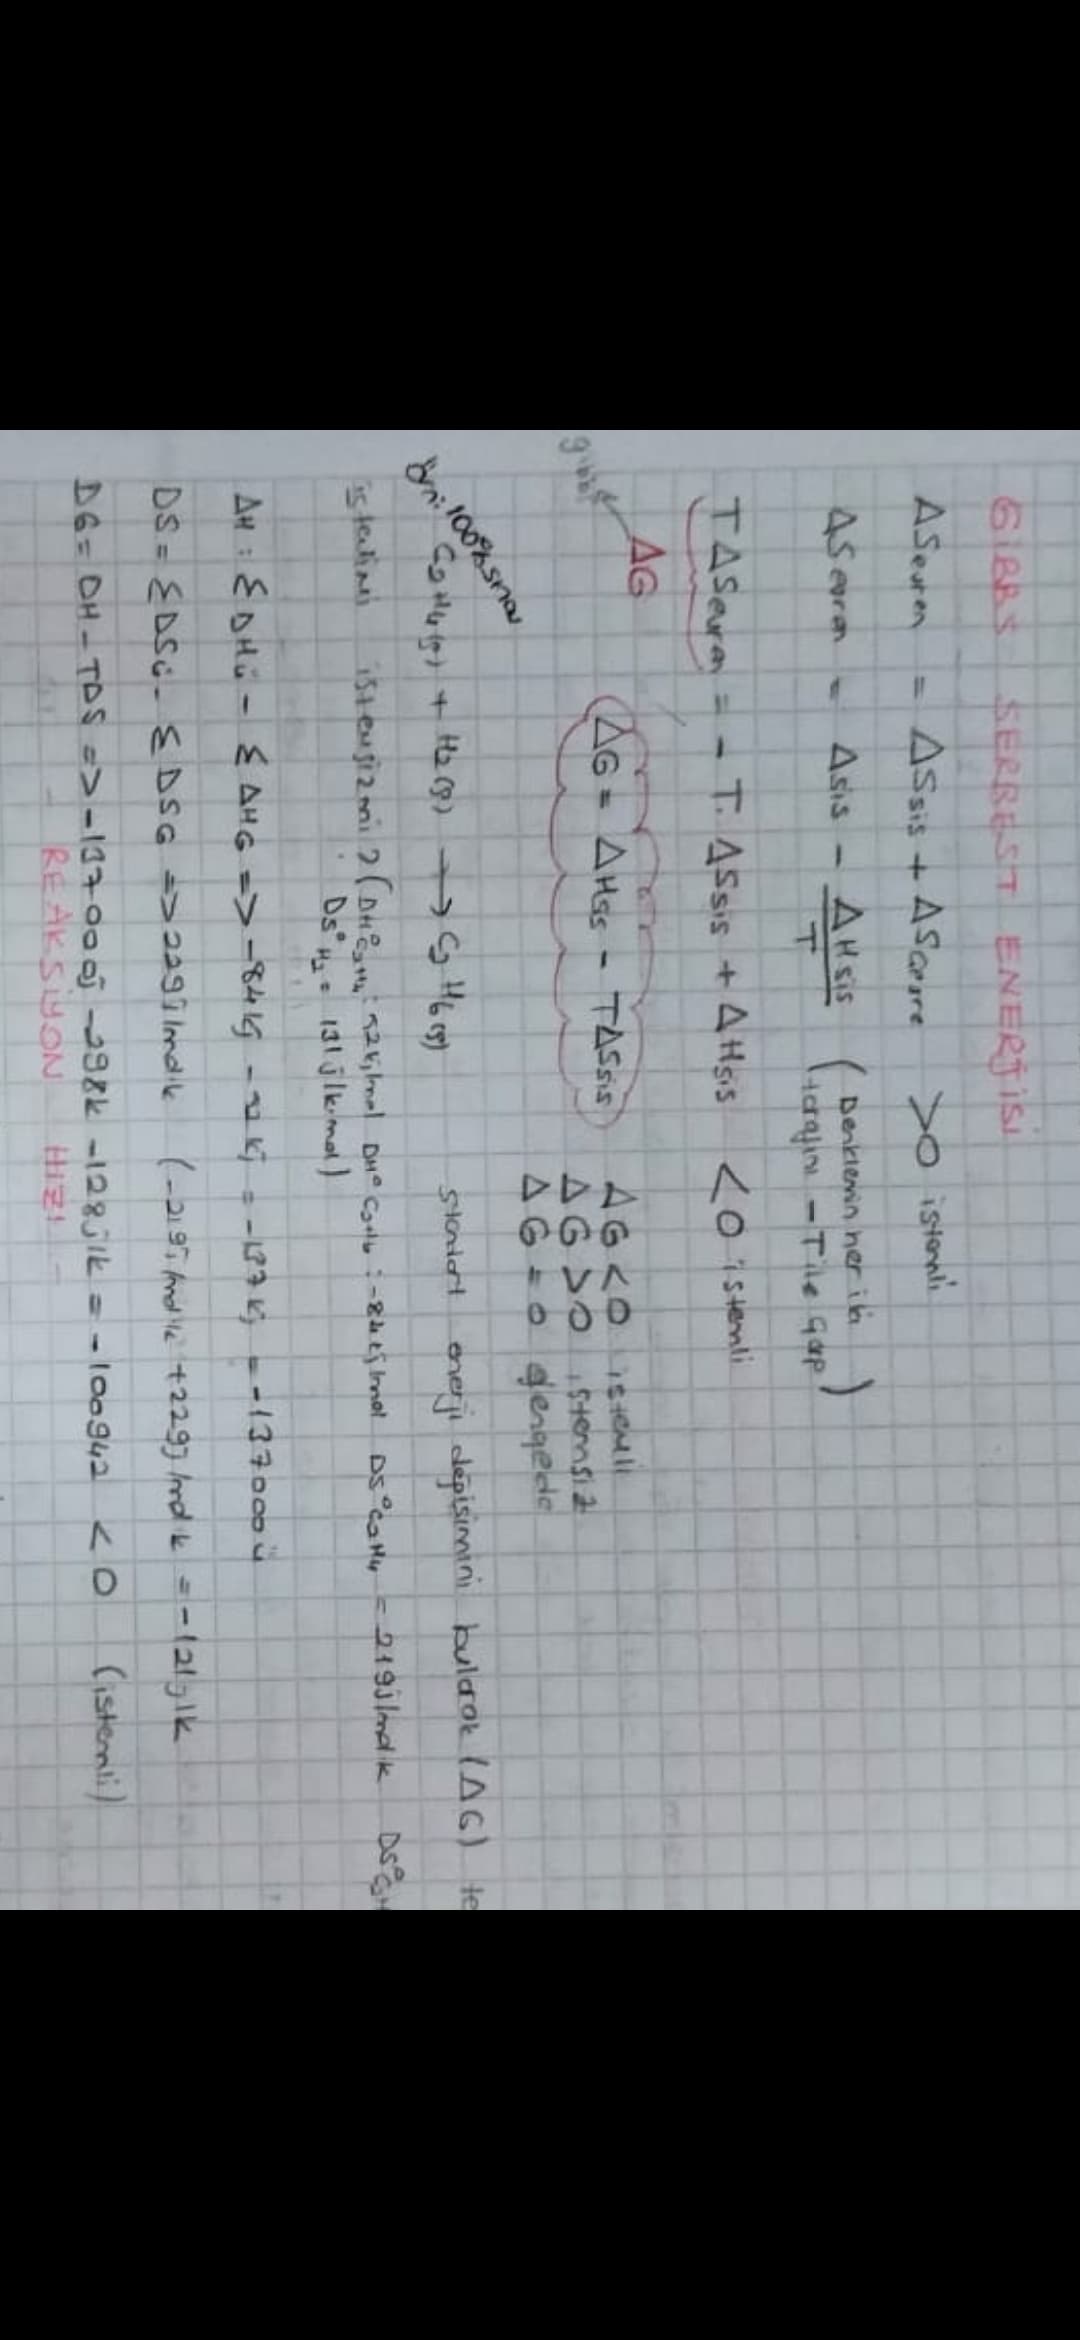 GIBBS SERBEST ENERJİSİ
ΔSevren = ΔSsis + ΔSçevre >0 istemli
ΔSevren = Δsis - ΔHsis / T (Denklemin her iki tarafını -T ile çarp)
TΔSevren = - T. ΔSsis + ΔHsis <0 istemli
ΔG
gibbs
ΔG = ΔHsis - TΔSsis
ΔG <0 istemli
ΔG >0 istemsiz
ΔG = 0 dengede
Örn: C2H4(g) + H2(g) → C2H6(g) standart enerji değişimini bularak (ΔG) te
100% sınav
istemlimi istemsizmi? (DH°C2H4: 52kj/mol DH°C2H6: -84kj/mol DS°C2H4 = 219j/molk DS°C2H
DS°H2 = 131j/k.mol)
ΔH: ΣΔHü - ΣΔHG => -84kj - 52kj = -137kj = -137000j
DS = ΣDSü - ΣDSG => 229j/molk (-219j/molk + 229j/molk = -121j/k
DG = DH - TDS => -137000j -298k -128j/k = -100942 < 0 (istemli)
REAKSİYON HIZI